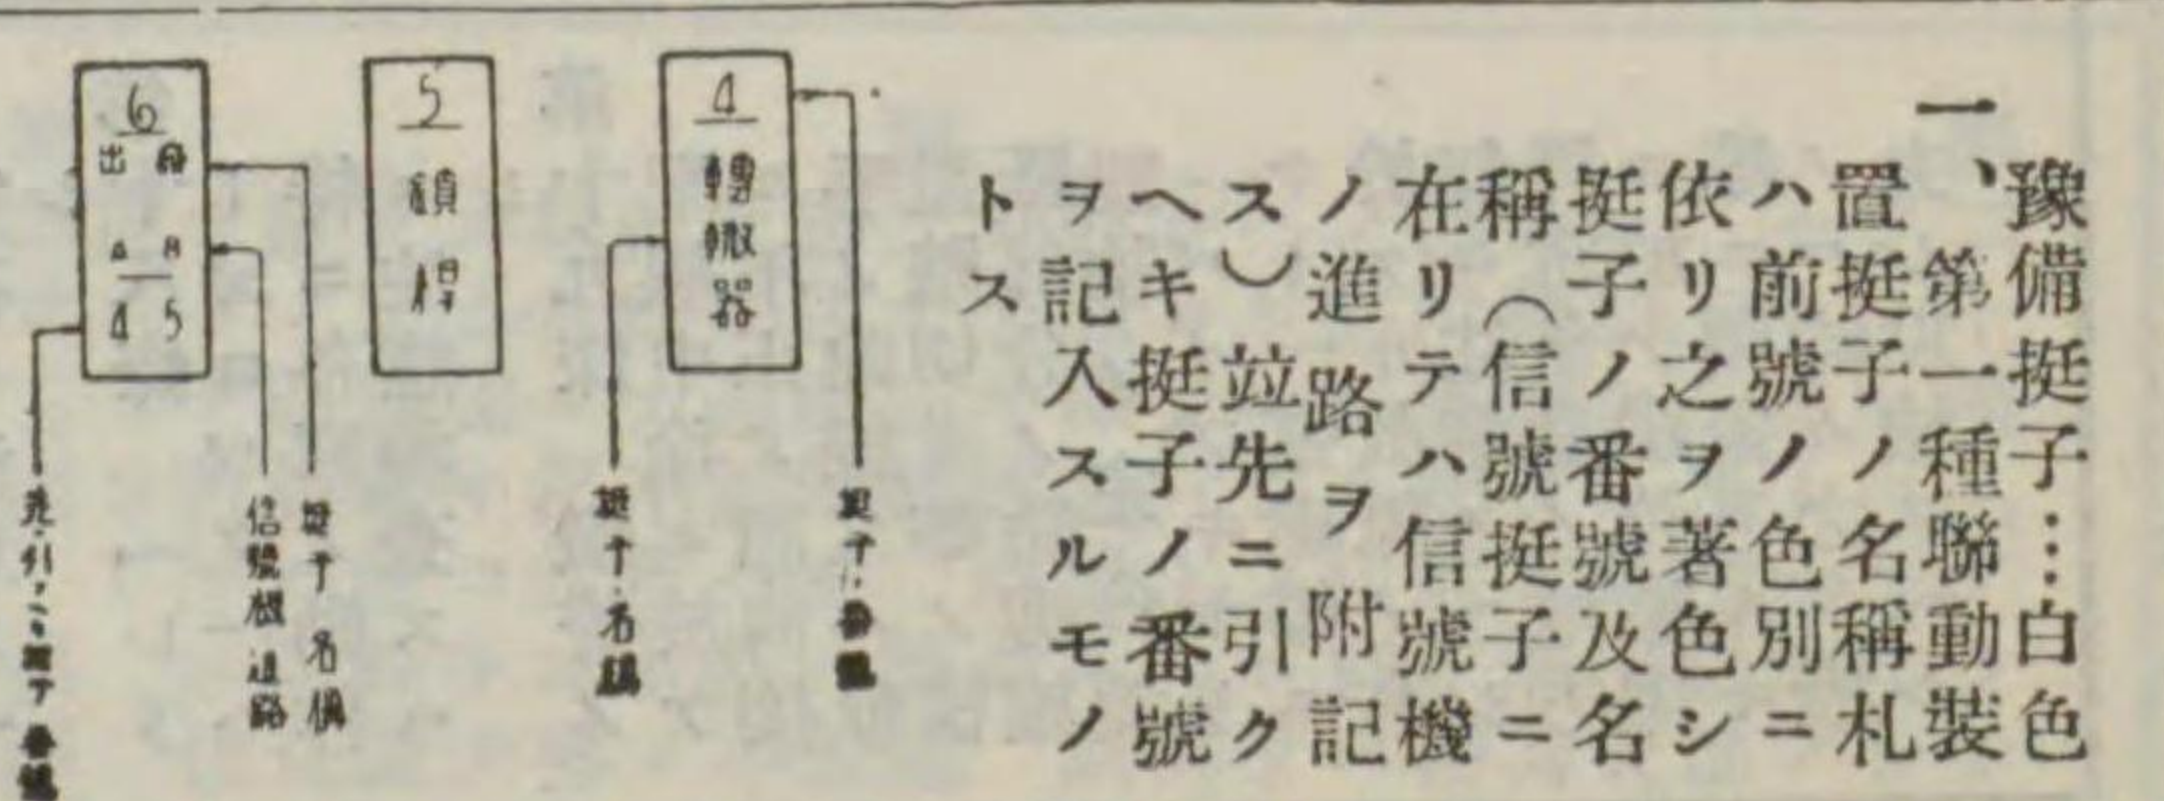 豫備挺子…白色
一、第一種聯動裝
置挺子ノ名稱札
ハ前號ノ色別ニ
依リ之ヲ著色シ
挺子ノ番號及名
稱(信號挺子ニ
在リテハ信號機
ノ進路ヲ附記
ス)竝先ニ引ク
ヘキ挺子ノ番號
ヲ記入スルモノ
トス
4
轉轍器
挺子ノ番號
挺子ノ名稱
5
鎖桿
6
出發
4 5
挺子ノ名稱
信號機ノ進路